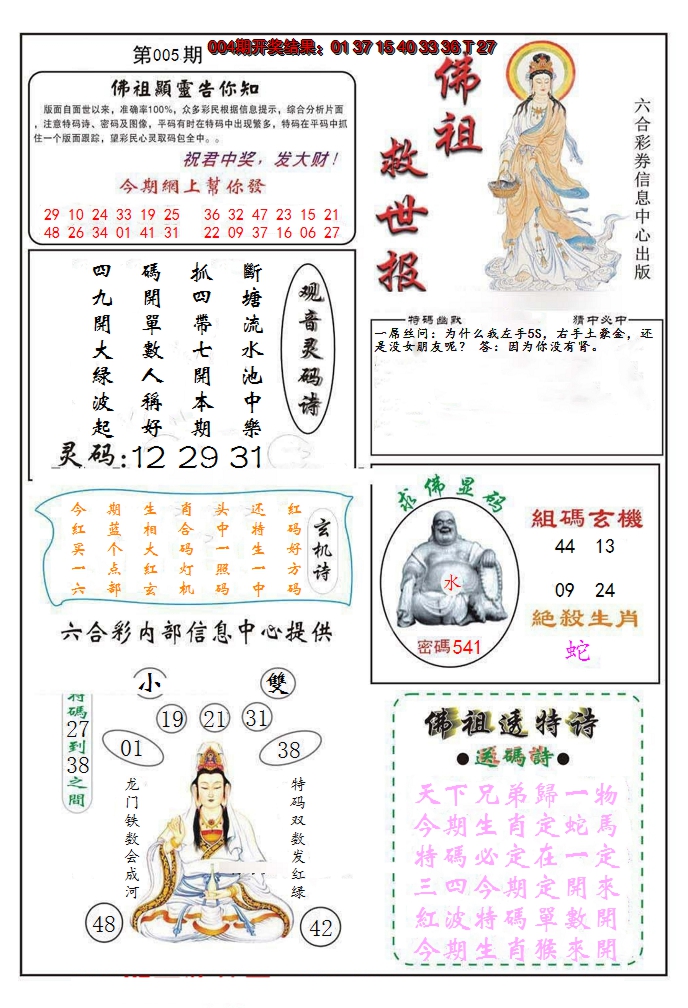 第005期
004期开奖结果：01 37 15 40 33 36 T 27
佛祖顯靈告你知
版面自面世以来，准确率100%，众多彩民根据信息提示，综合分析片面
，注意特码诗、密码及图像，平码有时在特码中出现繁多，特码在平码中抓
住一个版面跟踪，望彩民心灵取码包全中。。
祝君中奖，发大财！
今期網上幫你發
29 10 24 33 19 25 36 32 47 23 15 21
48 26 34 01 41 31 22 09 37 16 06 27
佛祖
救世报
六合彩券信息中心出版
观音灵码诗
斷塘流水池中樂
抓四帶七開本期
碼開單數人稱好
四九開大綠波起
灵码:12 29 31
特碼幽默
猜中必中
一屌丝问：为什么我左手5S，右手土豪金，还
是没女朋友呢？ 答：因为你没有肾。
玄机诗
红码好方码
还特生一中
头中一照码
肖合码灯机
生相大红玄
期蓝个点部
今红买一六
六合彩内部信息中心提供
求佛显码
水
密碼541
組碼玄機
44 13
09 24
絶殺生肖
蛇
小
雙
特碼27到38之間
19
21
31
01
38
龙门铁数会成河
特码双数发红绿
48
42
佛祖透特诗
●送碼詩●
天下兄弟歸一物
今期生肖定蛇馬
特碼必定在一定
三四今期定開來
紅波特碼單數開
今期生肖猴來開